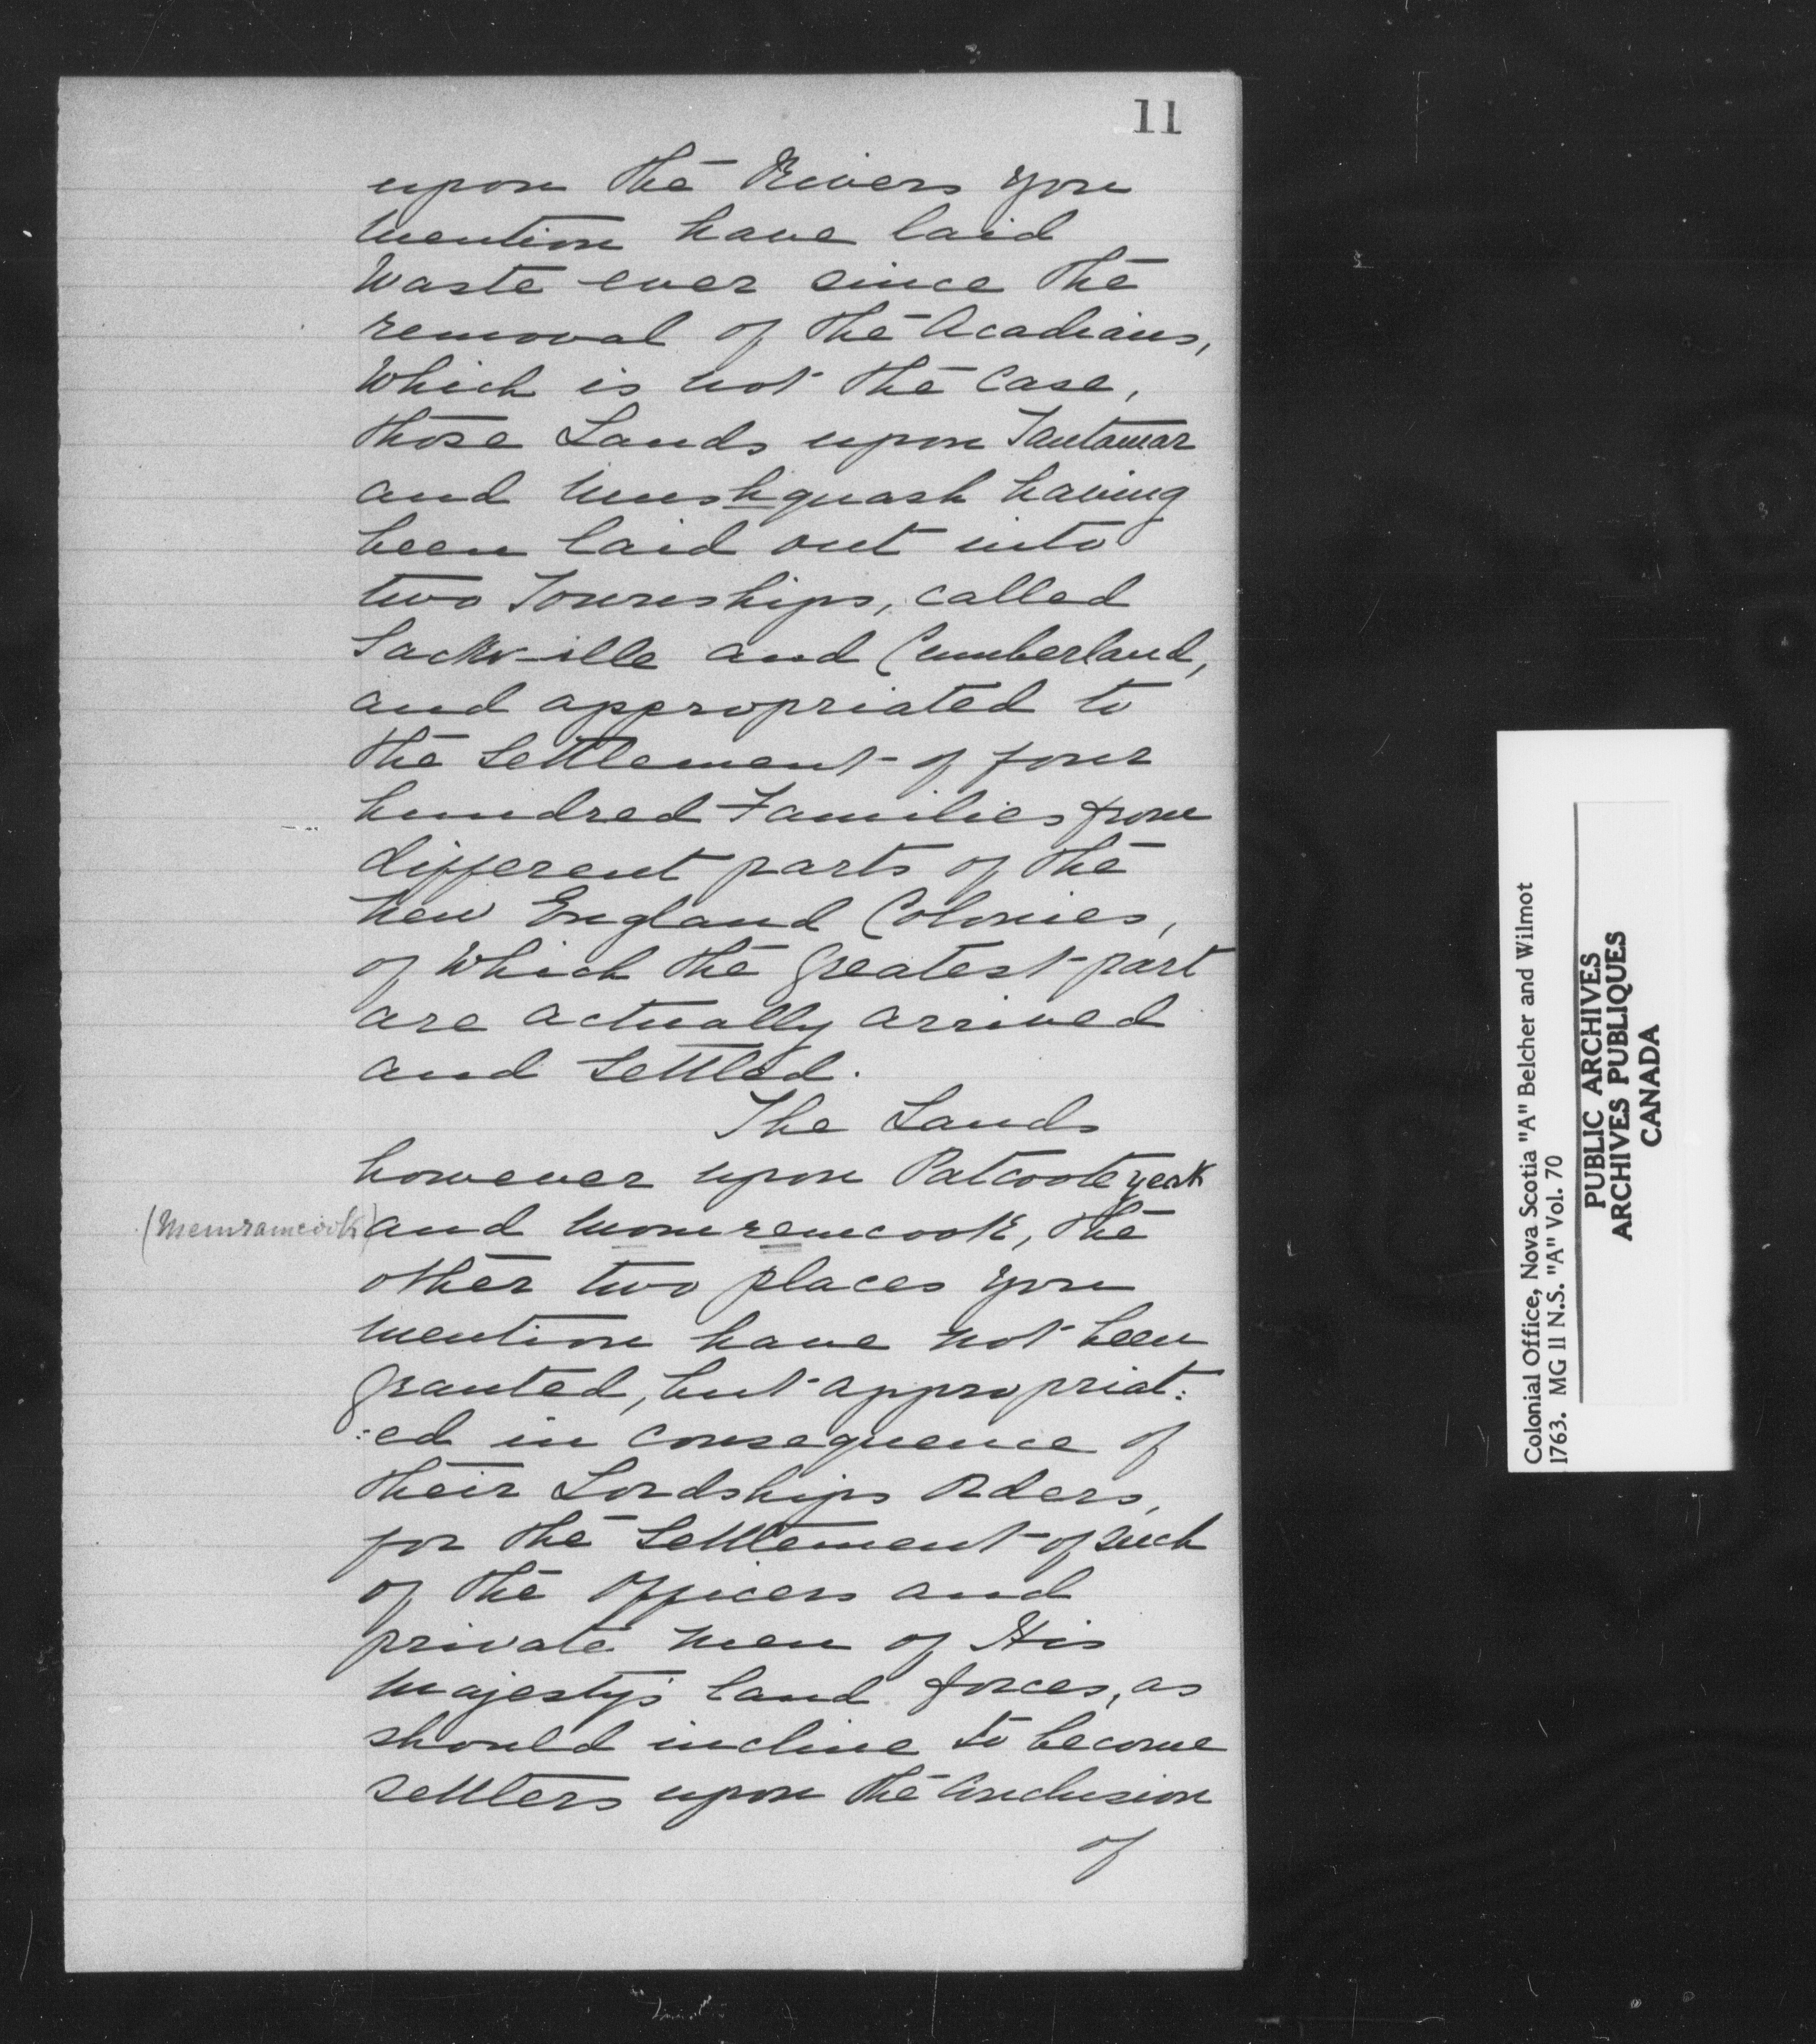 11
upon the Rivers you
mention have laid
Waste ever since the
removal of the Acadians,
Which is not the Case,
those Lands upon Tantamar
and Mushquash having
been laid out into
two Townships, called
Sackville and Cumberland,
and appropriated to
the Settlement of four
hundred Families from
different parts of the
New England Colonies,
of Which the Greatest part
are actually arrived
and Settled.
The Lands
however upon Patcooteyeak
(Memramcook) and Momremcook, the
other two places you
mention have not been
granted, but appropriat:
:ed in Consequence of
their Lordships Orders,
for the Settlement of such
of the Officers and
private Men of His
Majesty's land forces, as
should incline to become
settlers upon the Conclusion
of
Colonial Office, Nova Scotia "A" Belcher and Wilmot
1763. MG 11 N.S. "A" Vol. 70
PUBLIC ARCHIVES
ARCHIVES PUBLIQUES
CANADA